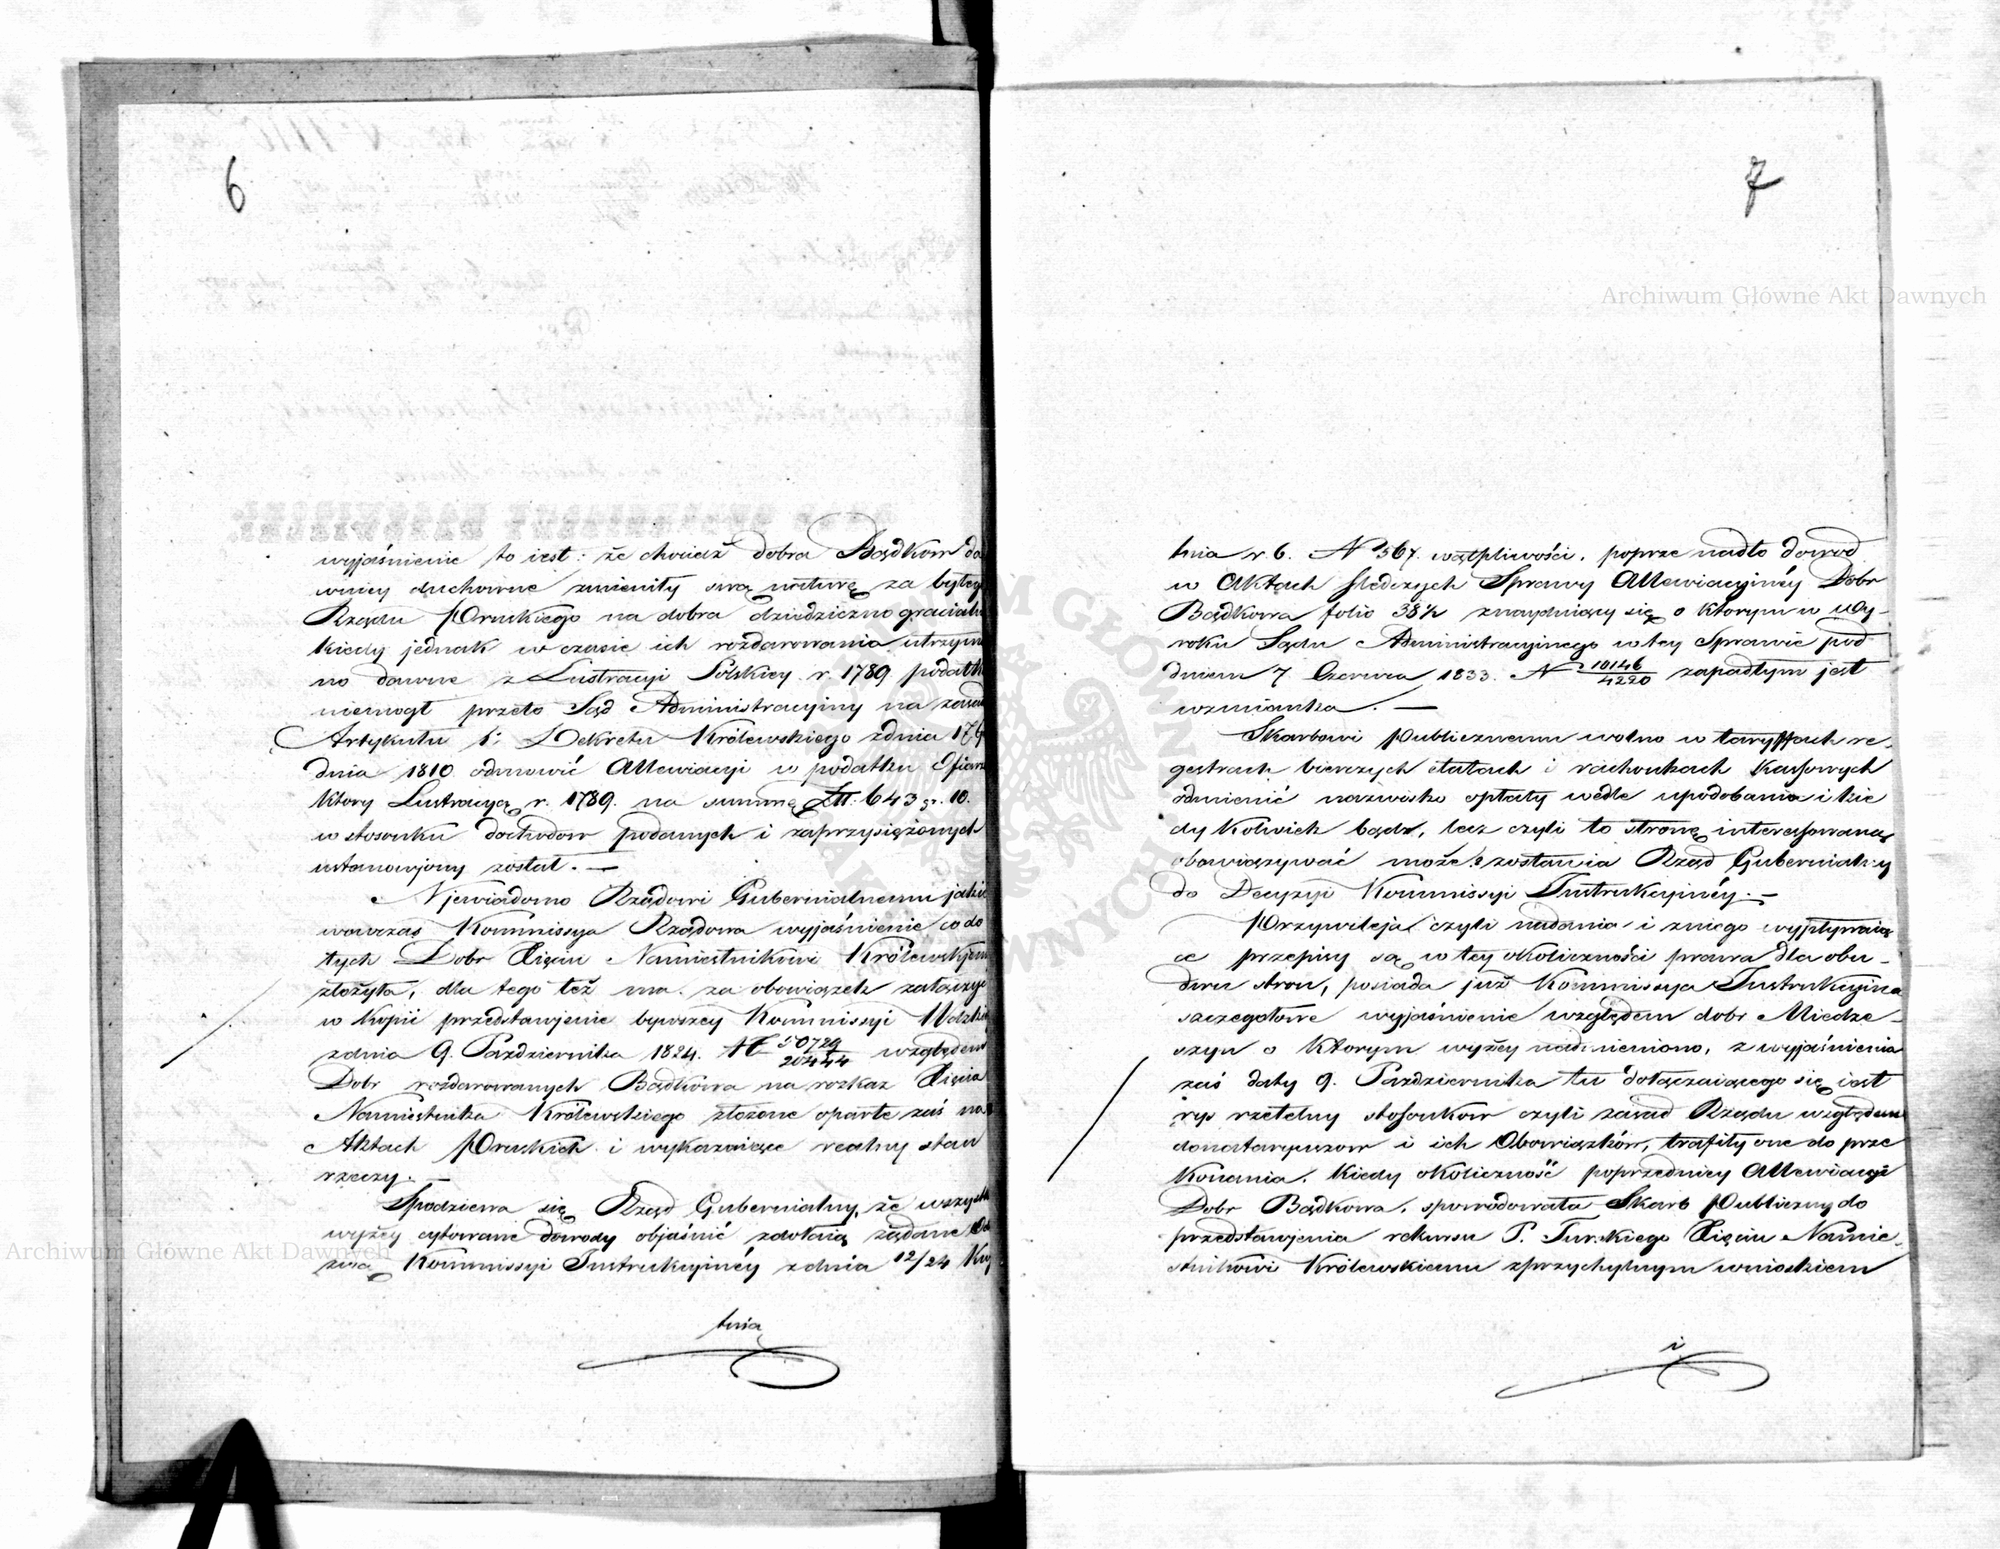 6
wyjaśnienie to iest: że chociaż dobra Bądkow da
wniey duchowne zmieniły swą naturę za byłego
Rządu Pruskiego na dobra dziedziczno gracialne
kiedy jednak w czasie ich rozdarowania utrzyma
no dawne z Lustracyi Polskiey r. 1789 podatki
niemogł przeto Sąd Administracyjny na zasad
Artykułu 1. Dekretu Królewskiego zdnia
dnia 1810 odmowić Allewiacyi w podatku Ofiary
ktory Lustracyą r. 1789. na summę Złł. 643 gr. 10.
w stosunku dochodow podanych i zaprzysiężonych
ustanowjony został. —
Njewiadomo Rządowi Gubernialnemu jakie
wowczas Kommissya Rządowa wyjaśnienie co do
tych Dobr Xięciu Namiestnikowi Królewskjemu
złożyła, dla tego też ma za obowiązek załączyć
w kopii przedstawjenie bywszey Kommissyi Wdzkiey
zdnia 9. Października 1824. N 50729/20444 względem
Dobr rozdarowanych Bądkowa na rozkaz Xięcia
Namiestnika Królewskiego złożone oparte zaś na
Aktach Pruskich i wykazaiące realny stan
rzeczy. —
Spodziewa się Rząd Gubernialny, że wszystkie
wyżey cytowane dowody objaśnić zdołaią żądane Ode
zwą Kommissyi Instrukcyinéy zdnia 12/24 Kwj
tnia
7
tnia r. b. N 367. wątpliwości, poprze nadto dowod
w Aktach śledczych Sprawy Allewiacyjnéy Dobr
Bądkowa folio 38½ znayduiący się o ktorym w Wy-
roku Sądu Administracyjnego w tey Sprawie pod
dniem 7 Czerwca 1833. N 10146/4220 zapadłym jest
wzmianka. —
Skarbowi Publicznemu wolno w taryffach re-
gestrach bierczych etatach i rachunkach kassowych
odmienić nazwisko opłaty wedle upodobania i kie
dykolwiek bądź, lecz czyli to stronę interessowaną
obowiązywać może? zostawia Rząd Gubernialny
do Decyzyi Kommissyi Instrukcyinéy. —
Przywileja czyli nadania i zniego wypływaią
ce przepisy są w tey okoliczności prawa dla obu-
dwu stron, posiada już Kommissya Instrukcyina
szczegołowe wyjaśnienie względem dobr Miedze-
szyn o ktorym wyżey nadmieniono, z wyjaśnienia
zaś daty 9. Października tu dołączaiącego się iest
rys rzetelny stosunkow czyli zasad Rządu względem
donataryuszow i ich Obowiązków, trafiły one do prze
konania, kiedy okoliczność poprzedniey Allewiacyi
Dobr Bądkowa, spowodowała Skarb Publiczny do
przedstawjenia rekursu P. Turskiego Xięciu Namie-
stnikowi Królewskiemu zprzychylnym wnioskiem
i
Archiwum Główne Akt Dawnych